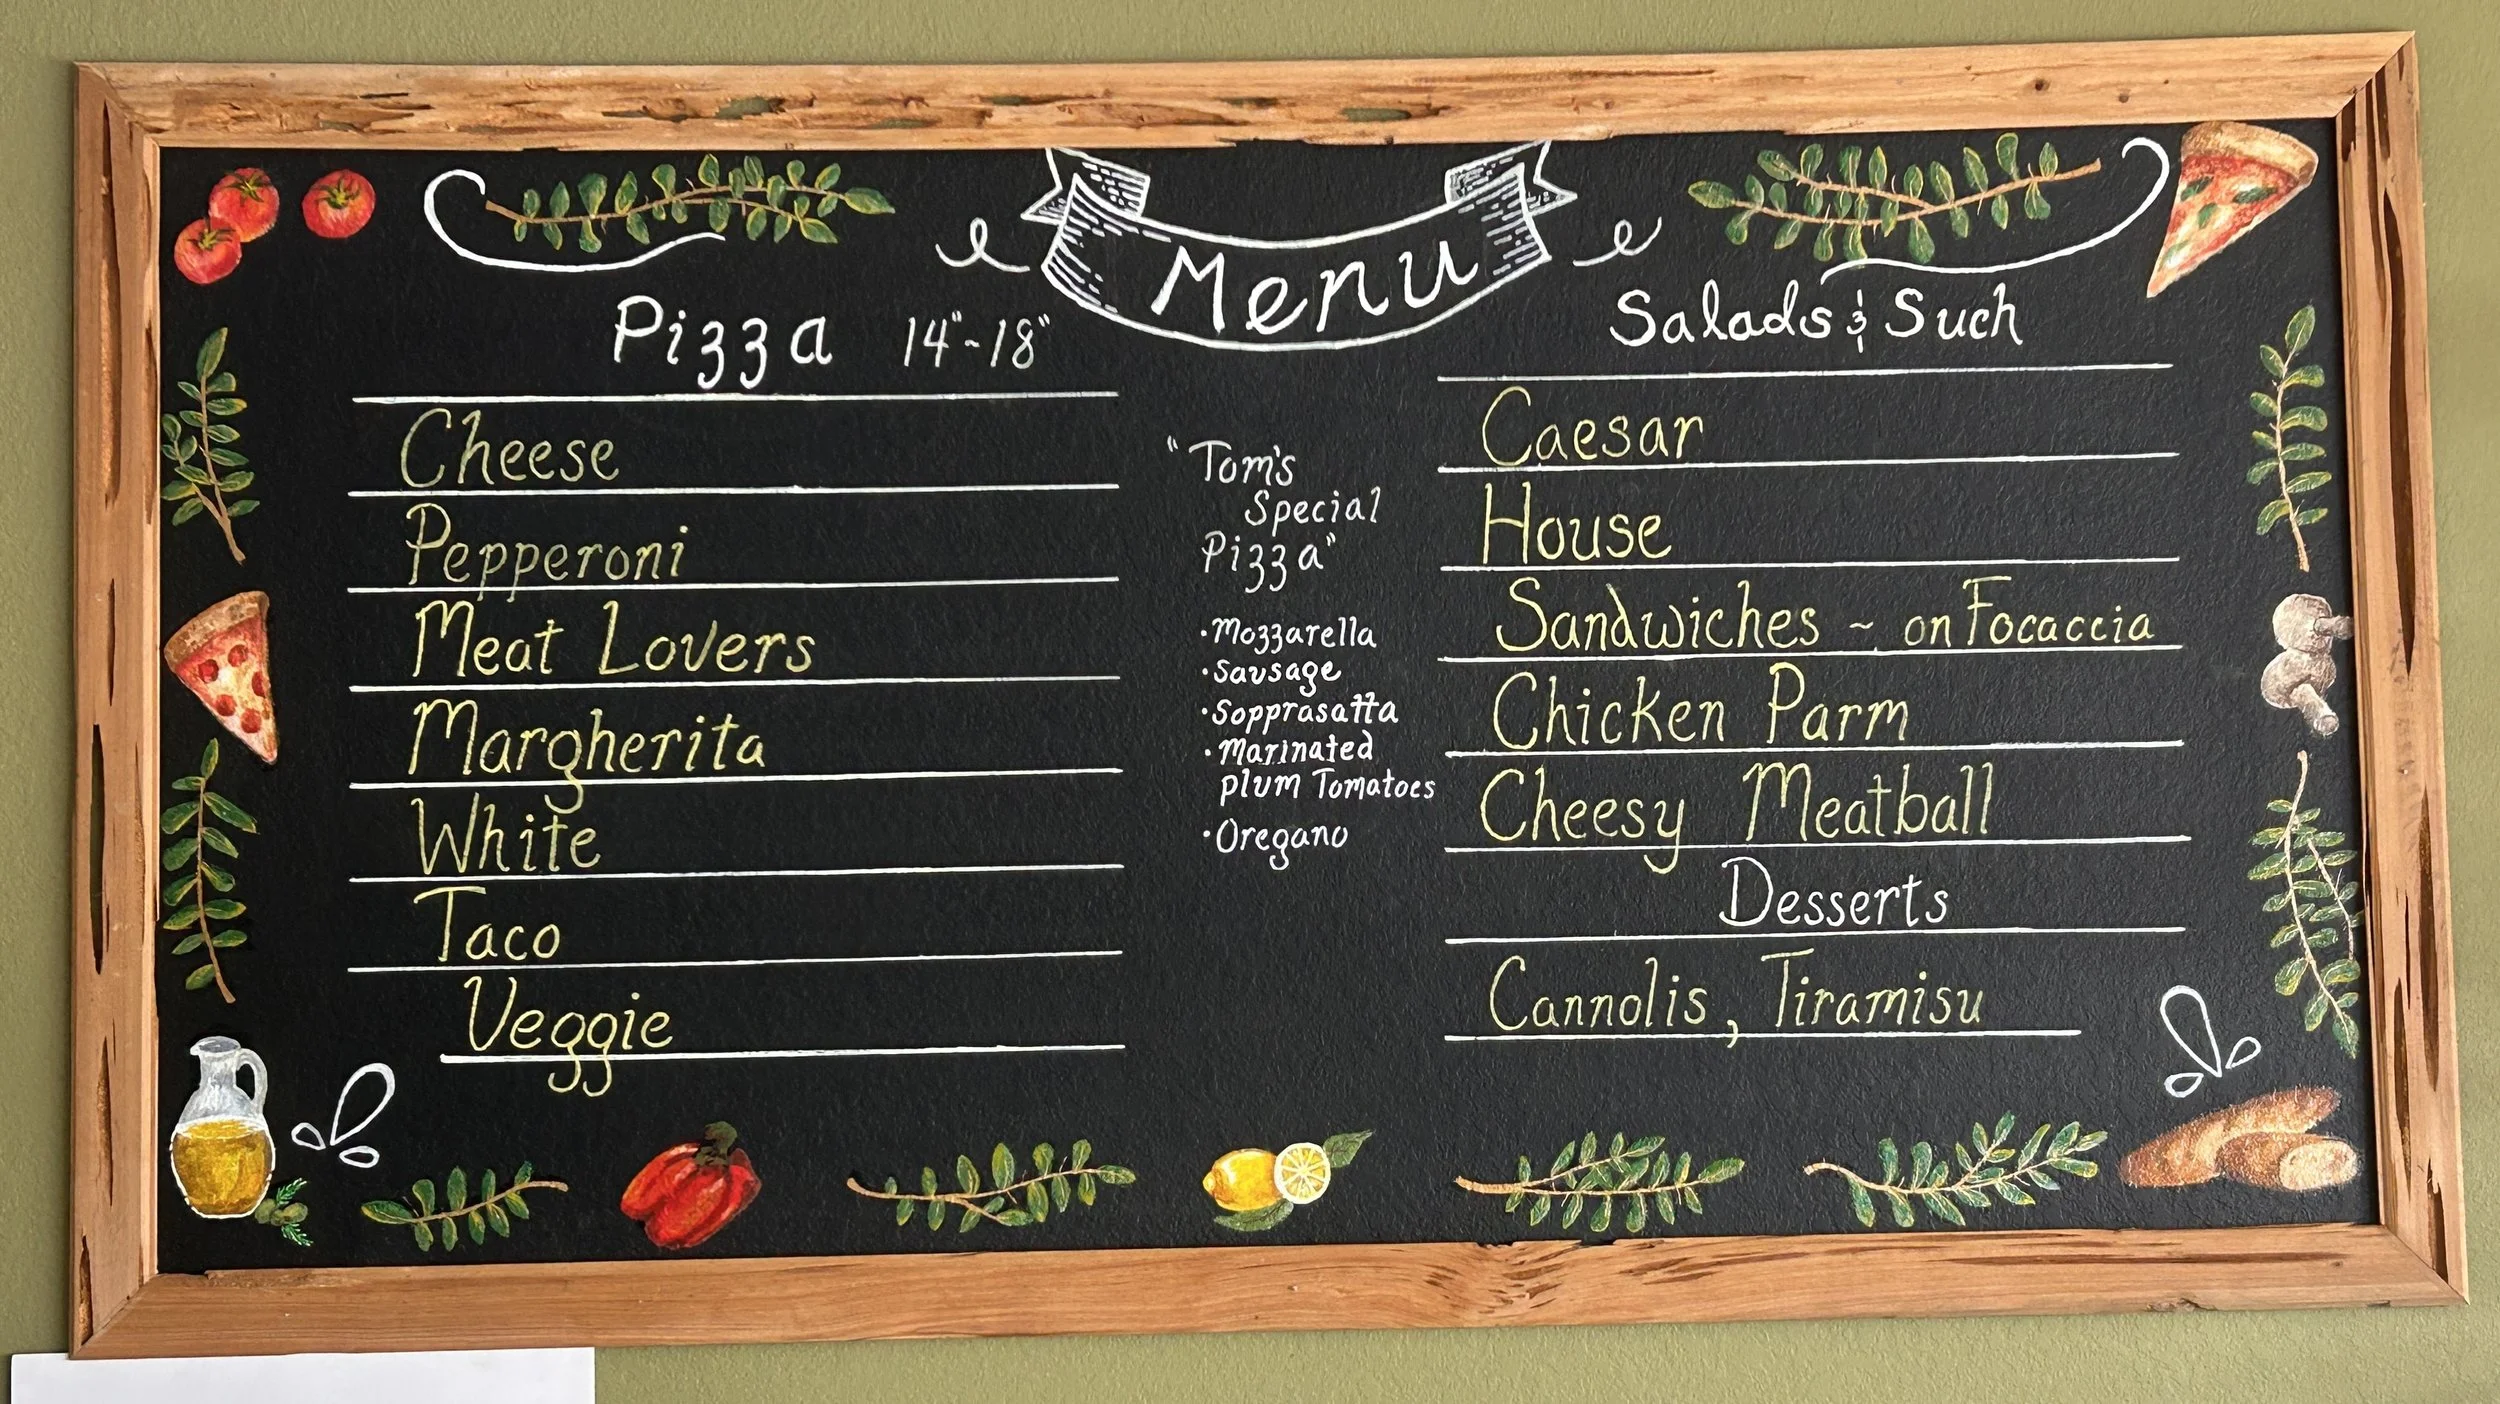 Menu
Pizza 14"-18"
Cheese
Pepperoni
Meat Lovers
Margherita
White
Taco
Veggie
"Tom's
Special
Pizza"
•Mozzarella
•Sausage
•Sopprasatta
•Marinated
plum Tomatoes
•Oregano
Salads & Such
Caesar
House
Sandwiches ~ on Focaccia
Chicken Parm
Cheesy Meatball
Desserts
Cannolis, Tiramisu